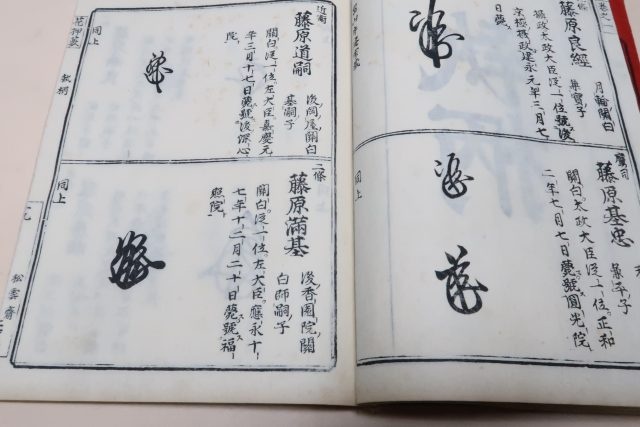 卷之一
藤原良經
月輪關白
兼實子
攝政太政大臣從一位號後
京極攝政建永元年三月七
日薨
鷹司
藤原基忠
兼平子
關白太政大臣從一位正和
二年七月七日薨號圓光院
同上
近衞
藤原道嗣
後岡屋關白
基嗣子
關白從一位左大臣嘉慶元
年三月十七日薨號後深心
院
同上
二條
藤原滿基
後香園院關
白師嗣子
關白從一位左大臣應永十
七年十二月二十日薨號福
照院
同上
花押藪
九
松雲齋